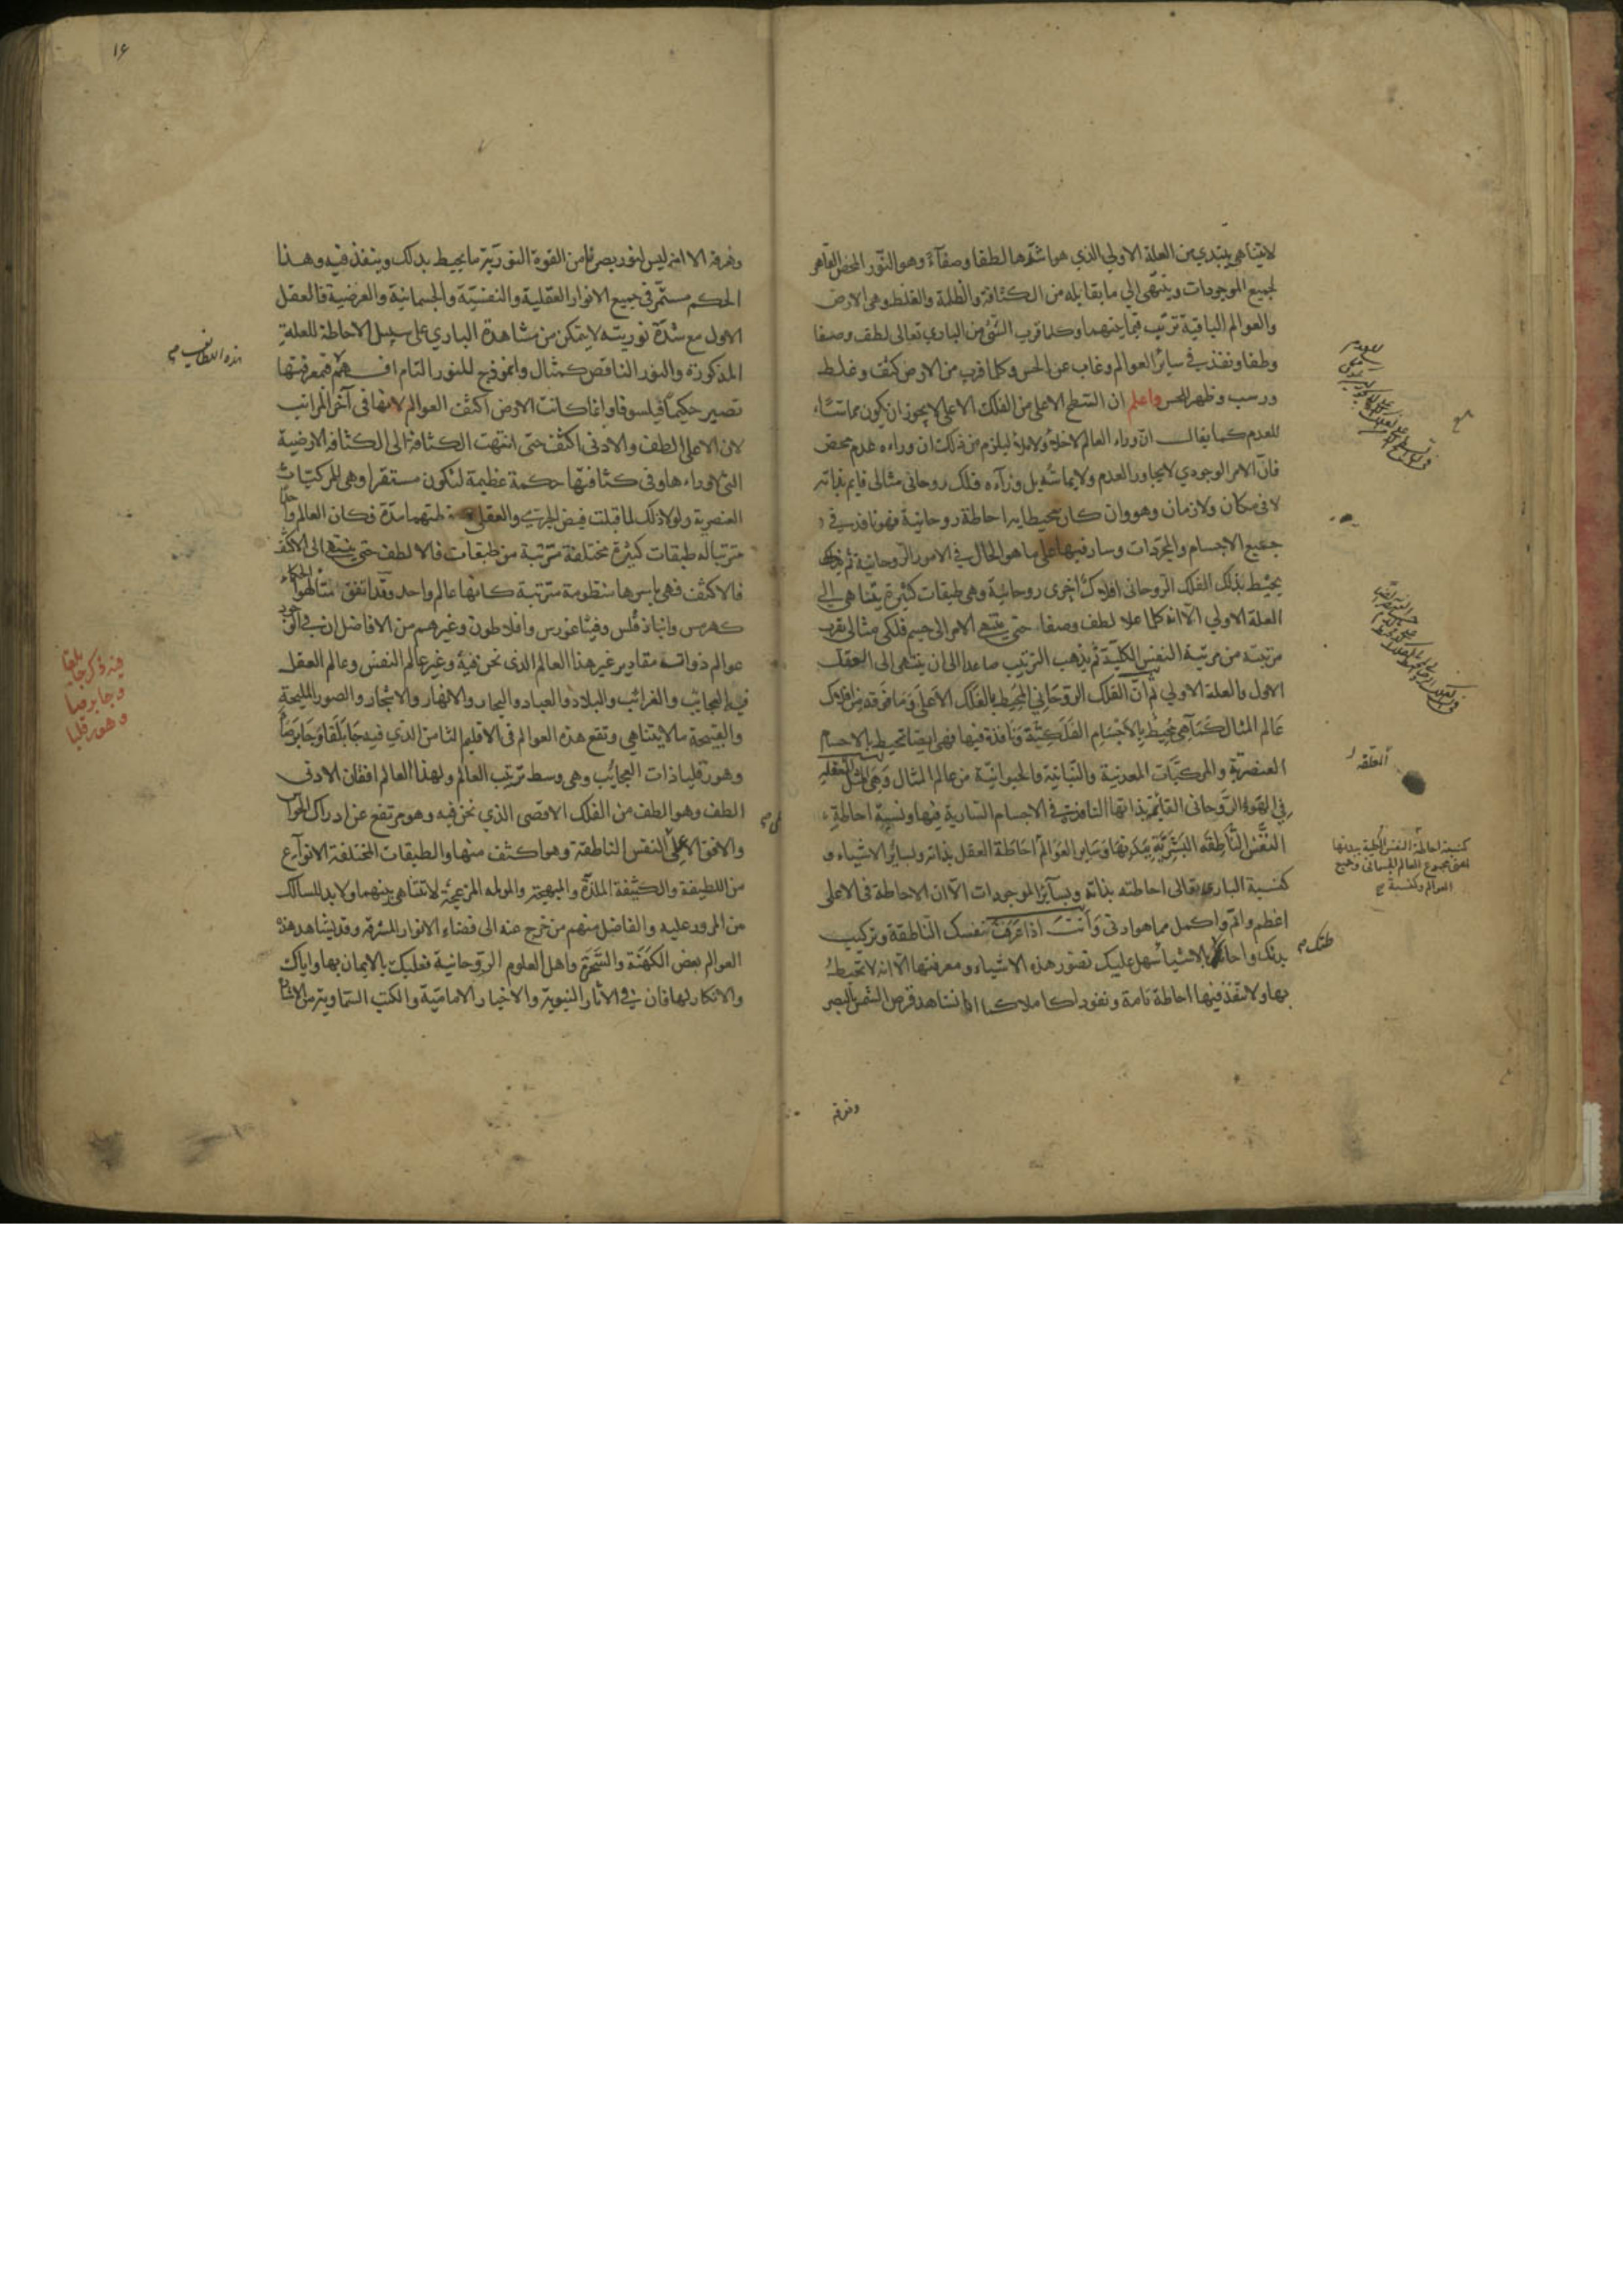 لا يتناهى يبتدي من العلة الاولى الذي هو اشدها لطفا وصفآء وهو النور المحض القاهر
لجميع الموجودات وينتهى الى ما يقابله من الكثافة والظلمة والغلظ وهى الارض
والعوالم الباقية ترتيب فيما بينهما وكلما قرب الشئ من البارى تعالى لطف وصفا
وطفا ونفذ في ساير العوالم وغاب عن الحس وكلما قرب من الارض كثف وغلظ
ورسب وظهر للحس واعلم ان السطح الاعلى من الفلك الاعلى لا يجوز ان يكون مماسا
للعدم كما يقال ان وراء العالم لا خلاء ولا ملاء ليلزم من ذلك ان وراءه عدم محض
فان الامر الوجودي لا يجاور العدم ولا يماسه بل ورآءه فلك روحانى مثالى قايم بذاته
لا فى مكان ولا زمان وهو وان كان محيطا به احاطة روحانية فهو نافذ في
جميع الاجسام والمجردات وسار فيها على ما هو الحال في الامور الروحانية ثم
يحيط بذلك الفلك الروحانى افلاك اخرى روحانية وهى طبقات كثيرة يتناهى الى
العلة الاولى الا انه كلما علا لطف وصفا حتى ينتهى الامر الى جسم فلكى مثالى يقرب
مرتبته من مرتبة النفس الكلية ثم يذهب الترتيب صاعدا الى ان ينتهى الى العقل
الاول والعلة الاولى ثم ان الفلك الروحانى المحيط بالفلك الاعلى وما فوقه من افلاك
عالم المثال كما هى محيط بالاجسام الفلكية ونافذة فيها فهى ايضا تحيط بالاجسام
العنصرية والمركبات المعدنية والنباتية والحيوانية من عالم المثال وهى المثل
في القوة الروحانى القائمة بذاتها النافذة في الاجسام السارية فيها ونسبة احاطة
النفس الناطقه البشرية ببدنها وساير العوالم احاطة العقل بذاته وبساير الاشياء و
كنسبة البارى تعالى احاطته بذاته وبسآير الموجودات الا ان الاحاطة فى الاعلى
اعظم واتم واكمل مما هو ادنى وانت اذا عرفت نفسك الناطقة وتركيب
بدنك واحا بالاشيا سهل عليك تصور هذه الاشياء ومعرفتها الا انه لا تحيط
بها ولا تنفذ فيها احاطة تامة ونفوذا كاملا كما انا نشاهد قرص الشمس بالبصر
ونعرفه
العلقه
كنسبة احاطة النفس الكلية ببدنها
اعنى مجموع العالم الجسمانى وجميع
العوالم وكنسبة
طتك
١٤
ونعرفه الا انه ليس لنور بصرنا من القوة النورية ما يحيط بذلك وينفذ فيه وهذا
الحكم مستمر فى جميع الانوار العقلية والنفسية والجسمانية والعرضية فالعقل
الاول مع شدة نوريته لا يتمكن من مشاهدة البارى على سبيل الاحاطة للعلة
المذكورة والنور الناقص كمثال وانموذج للنور التام افهم فبمعرفتها
تصير حكيما فيلسوفا وانما كانت الارض اكثف العوالم لانها فى آخر المراتب
لان الاعلى الطف والادنى اكثف حتى انتهت الكثافة الى الكثافه الارضية
التى لا وراءها وفى كثافتها حكمة عظيمة لتكون مستقرا وهى للمركبات
العنصرية ولولا ذلك لما قبلت فيض الجرمى والعقلى فكان العالم واحدا
مترتبا له طبقات كثيرة مختلفة مترتبة من طبقات فالالطف حتى ينتهى الى الاكثف
فالاكثف فهى باسرها منظومة مترتبة كانها عالم واحد وقد اتفق متألهوا الحكماء
كهرمس وانباذقلس وفيثاغورس وافلاطون وغيرهم من الافاضل ان في الوجود
عوالم ذوات مقادير غير هذا العالم الذى نحن فيه وغير عالم النفس وعالم العقل
فيه العجايب والغرائب والبلاد والعباد والبحار والانهار والاشجار والصور المليحة
والقبيحة ما لا يتناهى وتقع هذه العوالم فى الاقليم الثامن الذى فيه جابلقا وجابرصا
وهورقليا ذات العجايب وهى وسط ترتيب العالم ولهذا العالم افقان الادنى
الطف وهو الطف من الفلك الاقصى الذي نحن فيه وهو مرتفع عن ادراك الحواس
والافق الاعلى النفس الناطقة وهو اكثف منها والطبقات المختلفة الانوآع
من اللطيفة والكثيفة الملذة والمبهجة والمولمه المزعجة لا تتناهى بينهما ولا بد للسالك
من المرور عليه والفاضل منهم من خرج عنه الى فضاء الانوار المشرقه وقد يشاهد هذه
العوالم بعض الكهنة والسحرة واهل العلوم الروحانية فعليك بالايمان بها واياك
والانكار لها فان في الآثار النبوية والاخبار الامامية والكتب السماوية من الاشارة
هذه اللطايف
فيه ذكر جابلقا
وجابرصا
وهورقليا